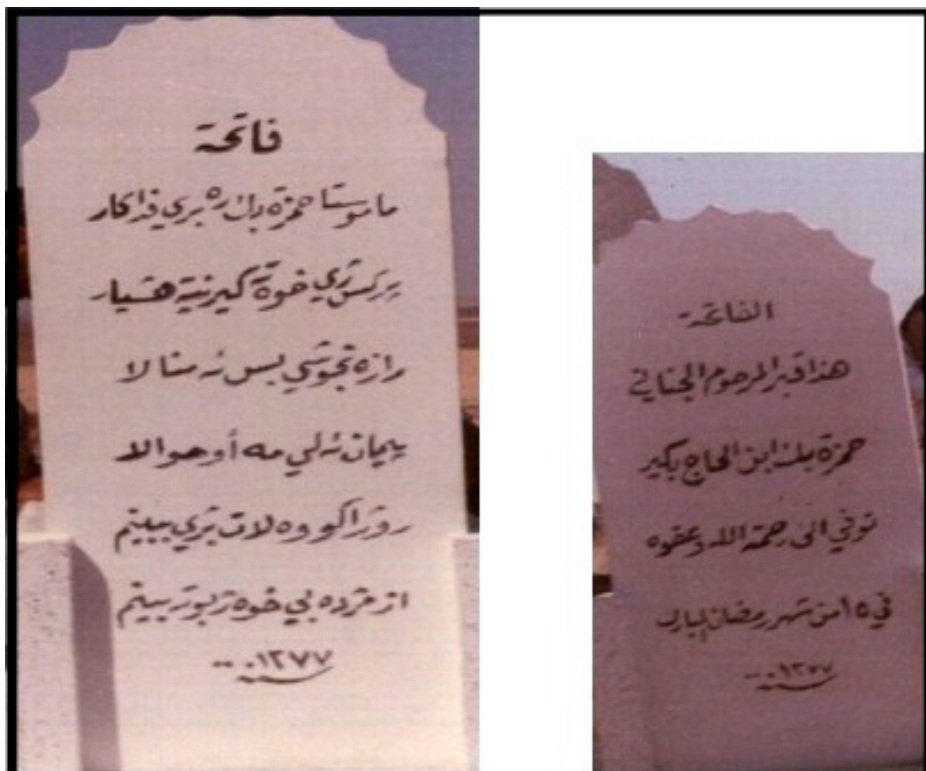 فاتحة
ماموستا حمزة بك ره بري فداكار
سركس زي خوة كيرنية هشيار
رازه نجوشي بس نه منالا
پيمان نه لي مه أو هوالا
روژ اكو وه لات بري ببينم
از مژده بي خوه ژبوته بينم
سنة ١٣٧٧
الفاتحة
هذا قبر المرحوم الجناني
حمزة بك ابن الحاج بكير
توفي الى رحمة الله وعفوه
في ١٥ من شهر رمضان المبارك
سنة ١٣٧٧